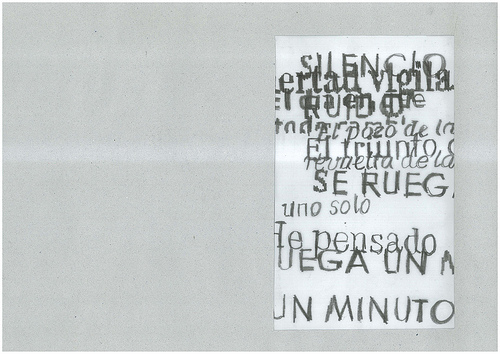 SILENCIO
ertad vigila
El día en que
RUIDO
El pozo de la
El triunfo
revuelta de la
SE RUEGA
uno solo
He pensado
UEGA UN M
UN MINUTO